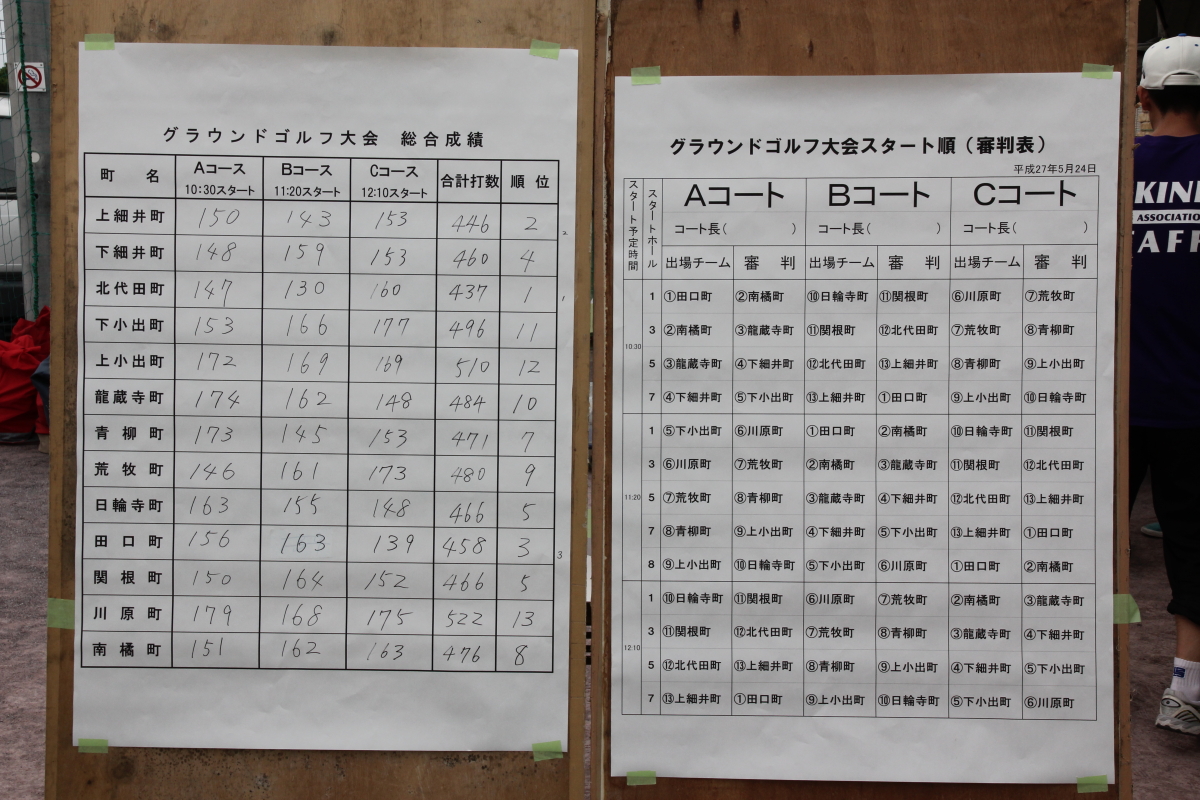 グラウンドゴルフ大会 総合成績
町名 Aコース 10:30スタート Bコース 11:20スタート Cコース 12:10スタート 合計打数 順位
上細井町 150 143 153 446 2 2
下細井町 148 159 153 460 4
北代田町 147 130 160 437 1 1
下小出町 153 166 177 496 11
上小出町 172 169 169 510 12
龍蔵寺町 174 162 148 484 10
青柳町 173 145 153 471 7
荒牧町 146 161 173 480 9
日輪寺町 163 155 148 466 5
田口町 156 163 139 458 3 3
関根町 150 164 152 466 5
川原町 179 168 175 522 13
南橘町 151 162 163 476 8
グラウンドゴルフ大会スタート順(審判表)
平成27年5月24日
スタート予定時間 スタートホール Aコート Bコート Cコート
コート長( ) コート長( ) コート長( )
出場チーム 審判 出場チーム 審判 出場チーム 審判
10:30
1 ①田口町 ②南橘町 ⑩日輪寺町 ⑪関根町 ⑥川原町 ⑦荒牧町
3 ②南橘町 ③龍蔵寺町 ⑪関根町 ⑫北代田町 ⑦荒牧町 ⑧青柳町
5 ③龍蔵寺町 ④下細井町 ⑫北代田町 ⑬上細井町 ⑧青柳町 ⑨上小出町
7 ④下細井町 ⑤下小出町 ⑬上細井町 ①田口町 ⑨上小出町 ⑩日輪寺町
11:20
1 ⑤下小出町 ⑥川原町 ①田口町 ②南橘町 ⑩日輪寺町 ⑪関根町
3 ⑥川原町 ⑦荒牧町 ②南橘町 ③龍蔵寺町 ⑪関根町 ⑫北代田町
5 ⑦荒牧町 ⑧青柳町 ③龍蔵寺町 ④下細井町 ⑫北代田町 ⑬上細井町
7 ⑧青柳町 ⑨上小出町 ④下細井町 ⑤下小出町 ⑬上細井町 ①田口町
8 ⑨上小出町 ⑩日輪寺町 ⑤下小出町 ⑥川原町 ①田口町 ②南橘町
12:10
1 ⑩日輪寺町 ⑪関根町 ⑥川原町 ⑦荒牧町 ②南橘町 ③龍蔵寺町
3 ⑪関根町 ⑫北代田町 ⑦荒牧町 ⑧青柳町 ③龍蔵寺町 ④下細井町
5 ⑫北代田町 ⑬上細井町 ⑧青柳町 ⑨上小出町 ④下細井町 ⑤下小出町
7 ⑬上細井町 ①田口町 ⑨上小出町 ⑩日輪寺町 ⑤下小出町 ⑥川原町
KIN
ASSOCIATION
TAFF